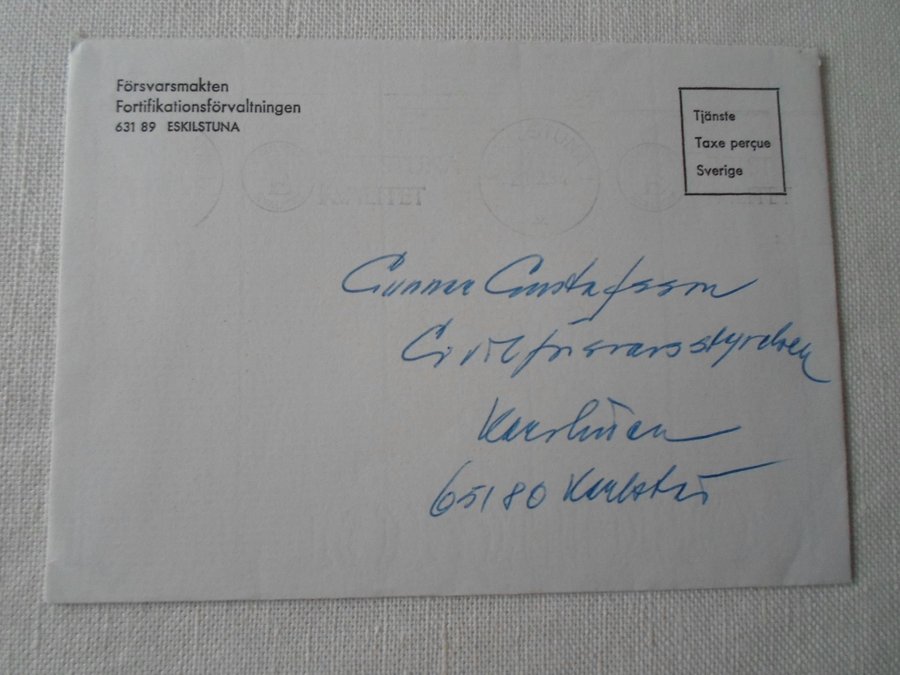 Försvarsmakten
Fortifikationsförvaltningen
631 89 ESKILSTUNA
Tjänste
Taxe perçue
Sverige
KVALITET
Gunnar Gustafsson
Civilförsvarsstyrelsen
65180 Karlstad